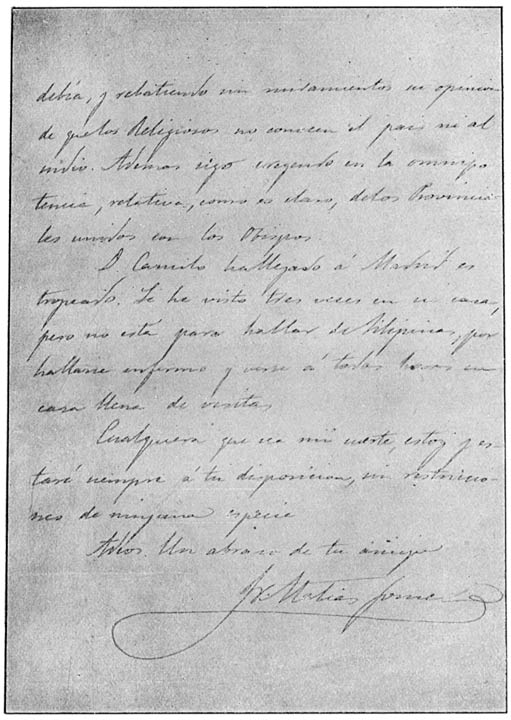 debía, y rebatiendo sin miramientos su opinion
de que los Religiosos no conocen el pais ni al
indio. Además sigo creyendo en la omnipo
tencia, relativa, como es claro, de los Provincia
les unidos con los Obispos.
D. Camilo ha llegado á Madrid es
tropeado. Le he visto tres veces en su casa,
pero no está para hablar de Filipinas, por
hallarse enfermo y verse á todas horas su
casa llena de visitas
Cualquiera que sea mi suerte, estoy y es
taré siempre á tu disposicion, sin restriccio-
nes de ninguna especie
Adios. Un abrazo de tu amigo
Fr. Matias